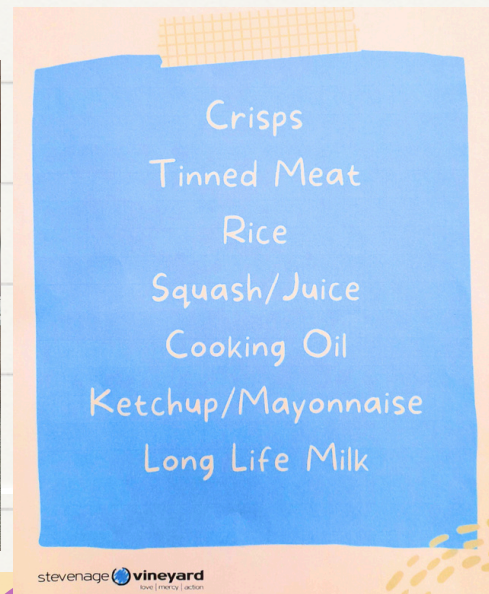 Crisps
Tinned Meat
Rice
Squash/Juice
Cooking Oil
Ketchup/Mayonnaise
Long Life Milk
stevenage vineyard
love | mercy | action